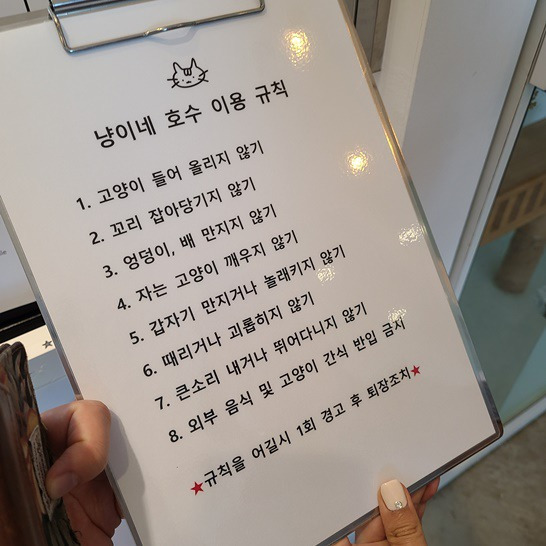 냥이네 호수 이용 규칙
1. 고양이 들어 올리지 않기
2. 꼬리 잡아당기지 않기
3. 엉덩이, 배 만지지 않기
4. 자는 고양이 깨우지 않기
5. 갑자기 만지거나 놀래키지 않기
6. 때리거나 괴롭히지 않기
7. 큰소리 내거나 뛰어다니지 않기
8. 외부 음식 및 고양이 간식 반입 금지
★규칙을 어길시 1회 경고 후 퇴장조치★